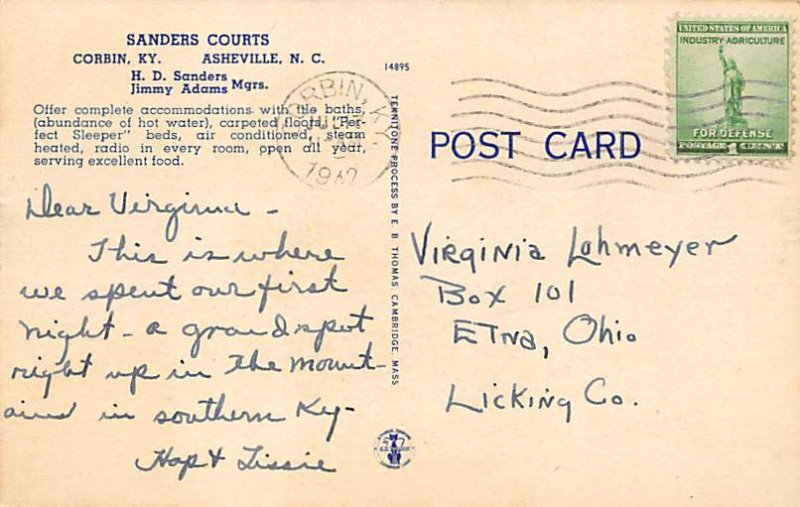 SANDERS COURTS
CORBIN, KY. ASHEVILLE, N. C.
H. D. Sanders
Jimmy Adams Mgrs.
Offer complete accommodations with tile baths,
(abundance of hot water), carpeted floors, "Per-
fect Sleeper" beds, air conditioned, steam
heated, radio in every room, open all year,
serving excellent food.
14895
TEKNITONE PROCESS BY E. B. THOMAS, CAMBRIDGE, MASS
CORBIN, KY.
JUL
1942
POST CARD
UNITED STATES OF AMERICA
INDUSTRY-AGRICULTURE
FOR DEFENSE
POSTAGE 1 CENT
Dear Virginia -
This is where
we spent our first
night - a grand spot
right up in the mount-
ains in southern Ky -
Hap & Lissie
Virginia Lohmeyer
Box 101
ETna, Ohio
Licking Co.